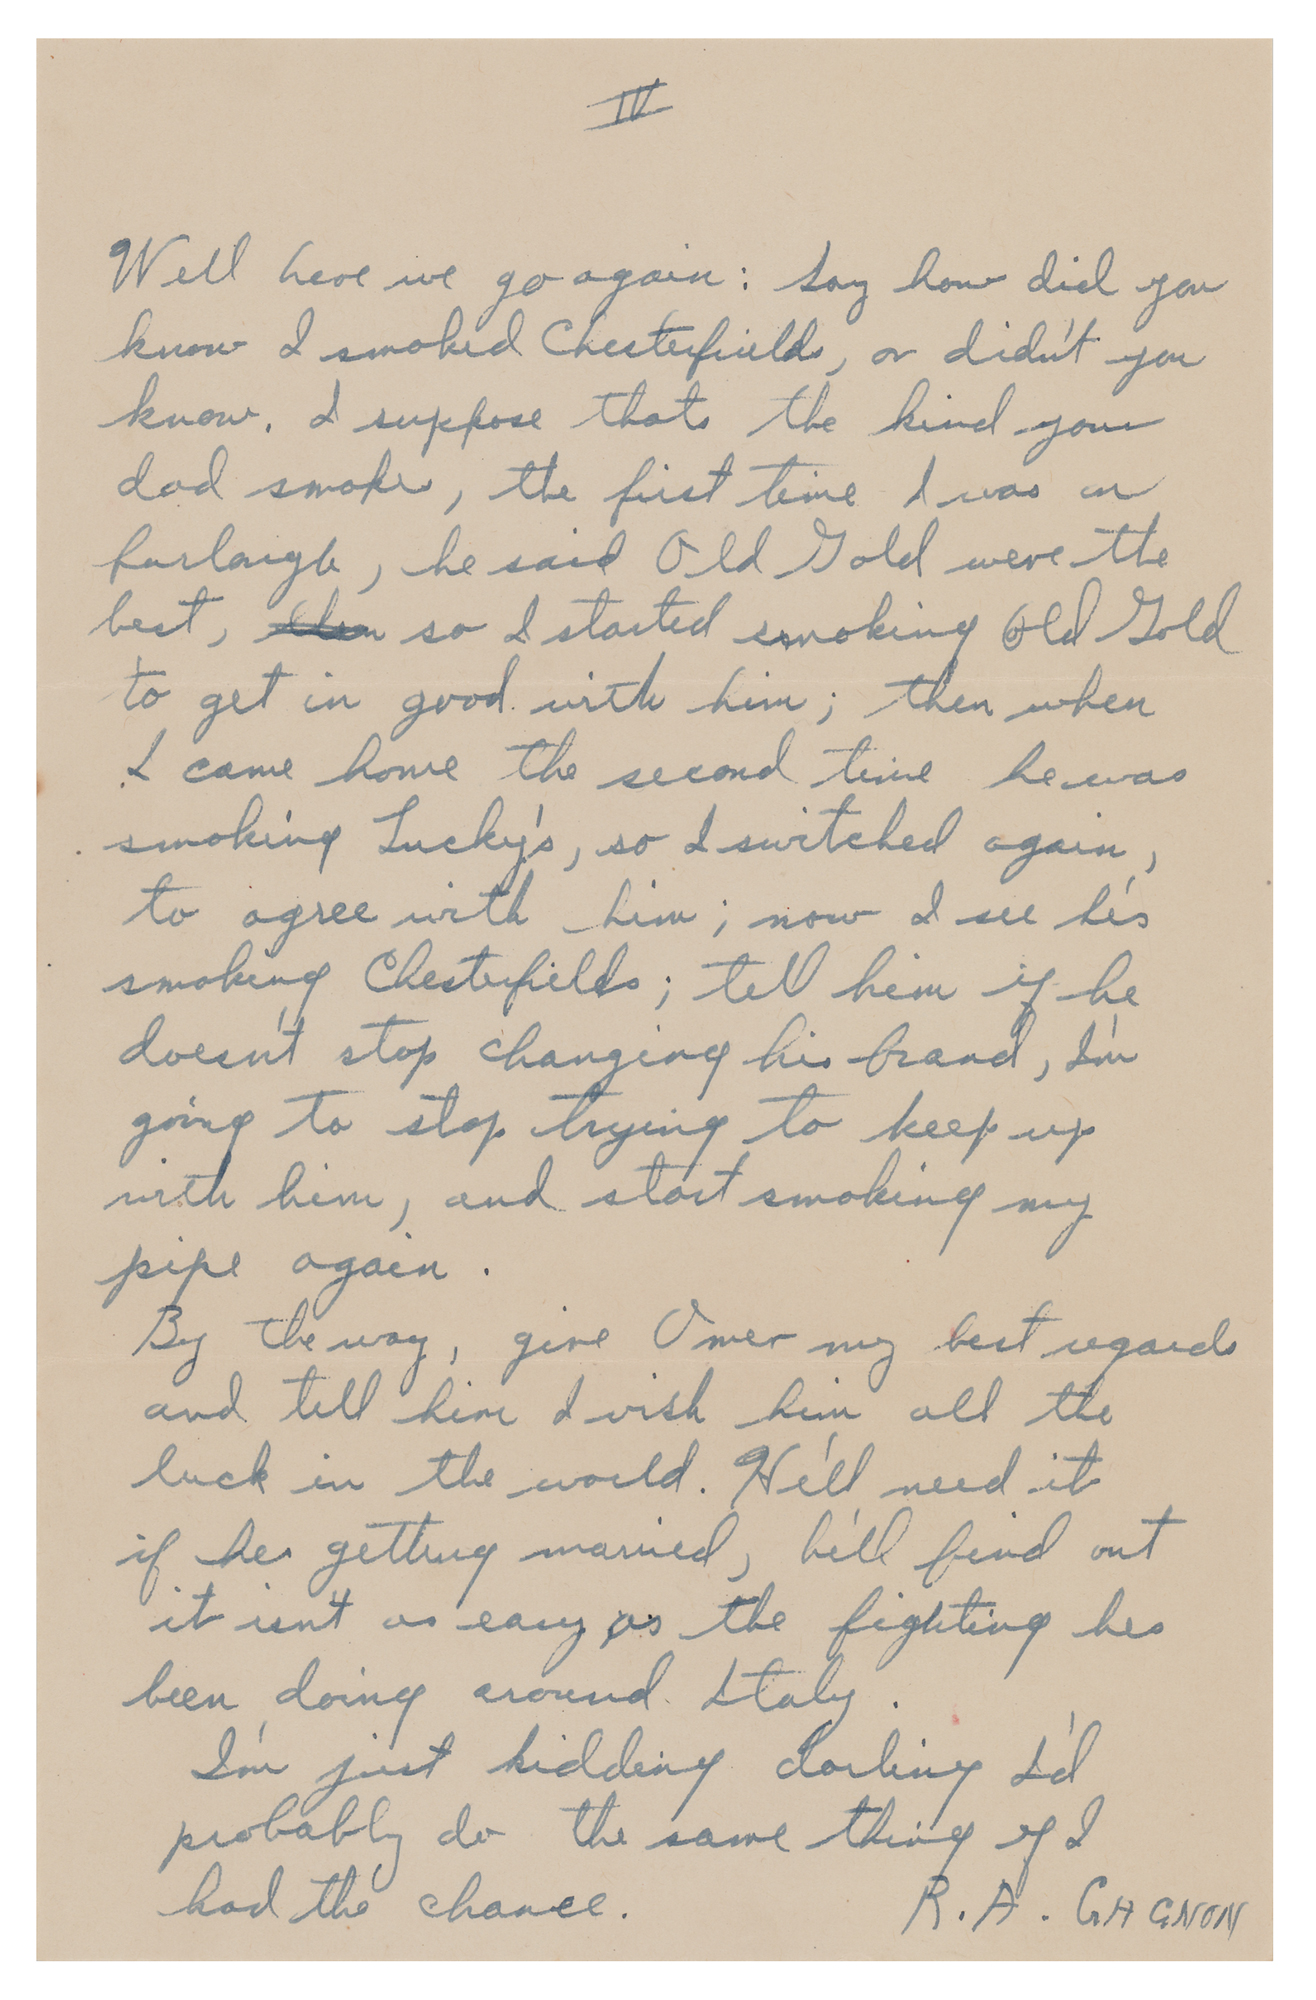 IV
Well here we go again: Say how did you
know I smoked Chesterfields, or didn't you
know. I suppose thats the kind your
dad smoke, the first time I was on
furlaugh, he said Old Gold were the
best, so I started smoking Old Gold
to get in good with him; then when
I came home the second time he was
smoking Lucky's, so I switched again,
to agree with him; now I see he's
smoking Chesterfields; tell him if he
doesn't stop changing his brand, I'm
going to stop trying to keep up
with him, and start smoking my
pipe again.
By the way, give Omer my best regards
and tell him I wish him all the
luck in the world. He'll need it
if hes getting married, he'll find out
it isn't as easy as the fighting hes
been doing around Italy.
I'm just kidding darling I'd
probably do the same thing if I
had the chance. R. A. GAGNON